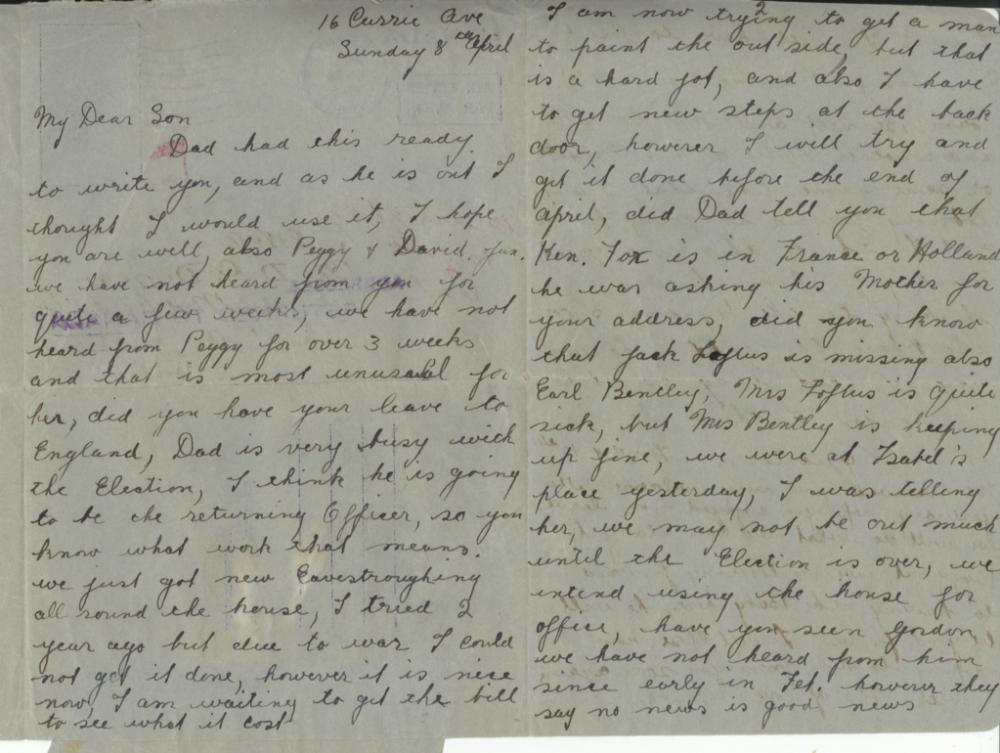 16 Currie Ave
Sunday 8th April
My Dear Son
Dad had this ready.
to write you, and as he is out I
thought I would use it, I hope
you are well, also Peggy & David. Jun.
we have not heard from you for
quite a few weeks, we have not
heard from Peggy for over 3 weeks
and that is most unusual for
her, did you have your leave to
England, Dad is very busy with
the Election, I think he is going
to be the returning Officer, so you
know what work that means.
we just got new Eavestroughing
all round the house, I tried 2
year ago but due to war I could
not get it done, however it is nice
now, I am waiting to get the bill
to see what it cost
2
I am now trying to get a man
to paint the out side, but that
is a hard jot, and also I have
to get new steps at the back
door, however I will try and
get it done before the end of
april, did Dad tell you that
Ken. Fox is in France or Holland
he was asking his Mother for
your address, did you know
that Jack Loftus is missing also
Earl Bentley, Mrs Loftus is quite
sick, but Mrs Bentley is keeping
up fine, we were at Isabel's
place yesterday, I was telling
her, we may not be out much
until the Election is over, we
intend using the house for
office, have you seen Gordon
we have not heard from him
since early in Feb. however they
say no news is good news